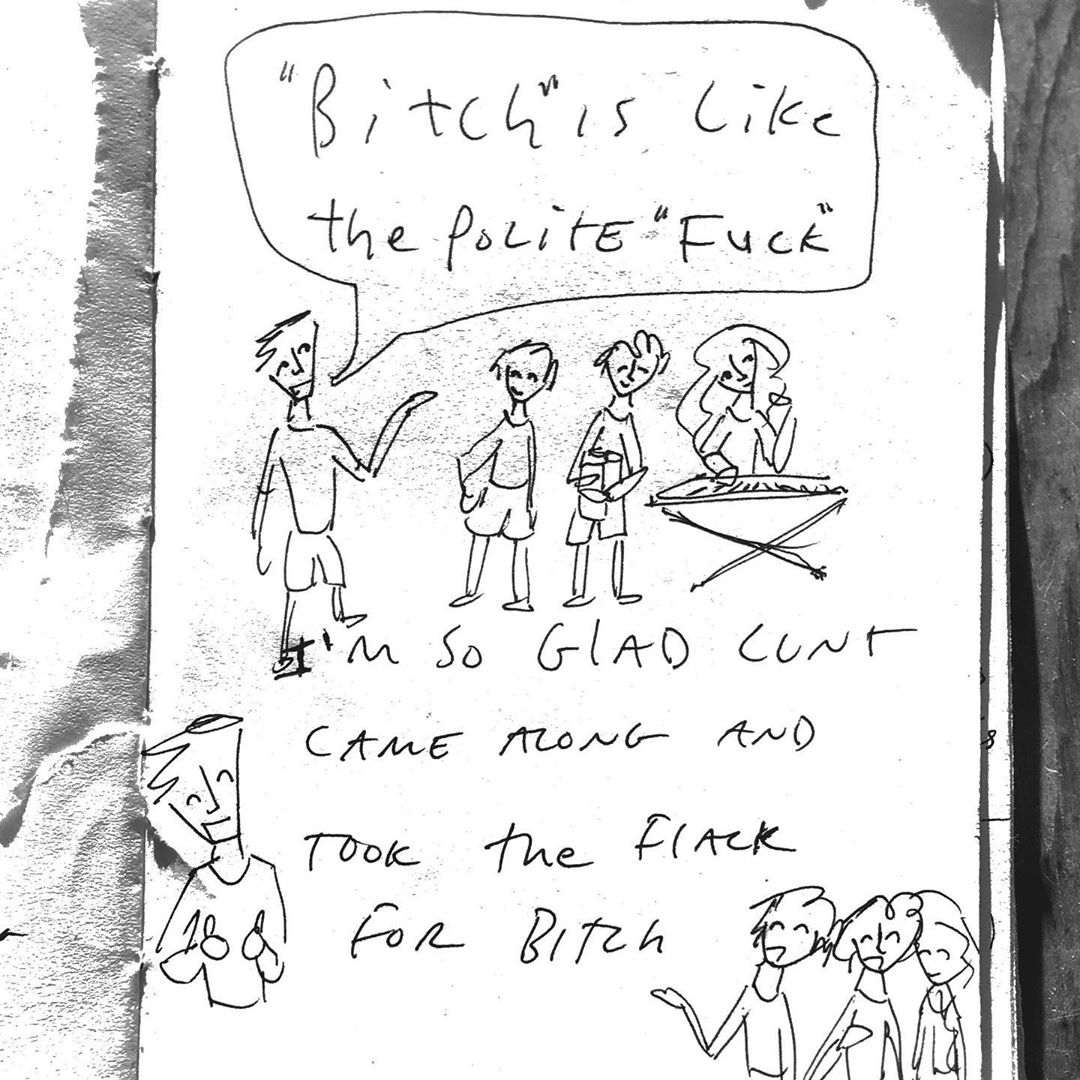 "Bitch" is like
the POLITE "Fuck"
I'M SO GLAD CUNT
CAME ALONG AND
TOOK the FLACK
FOR BITCH